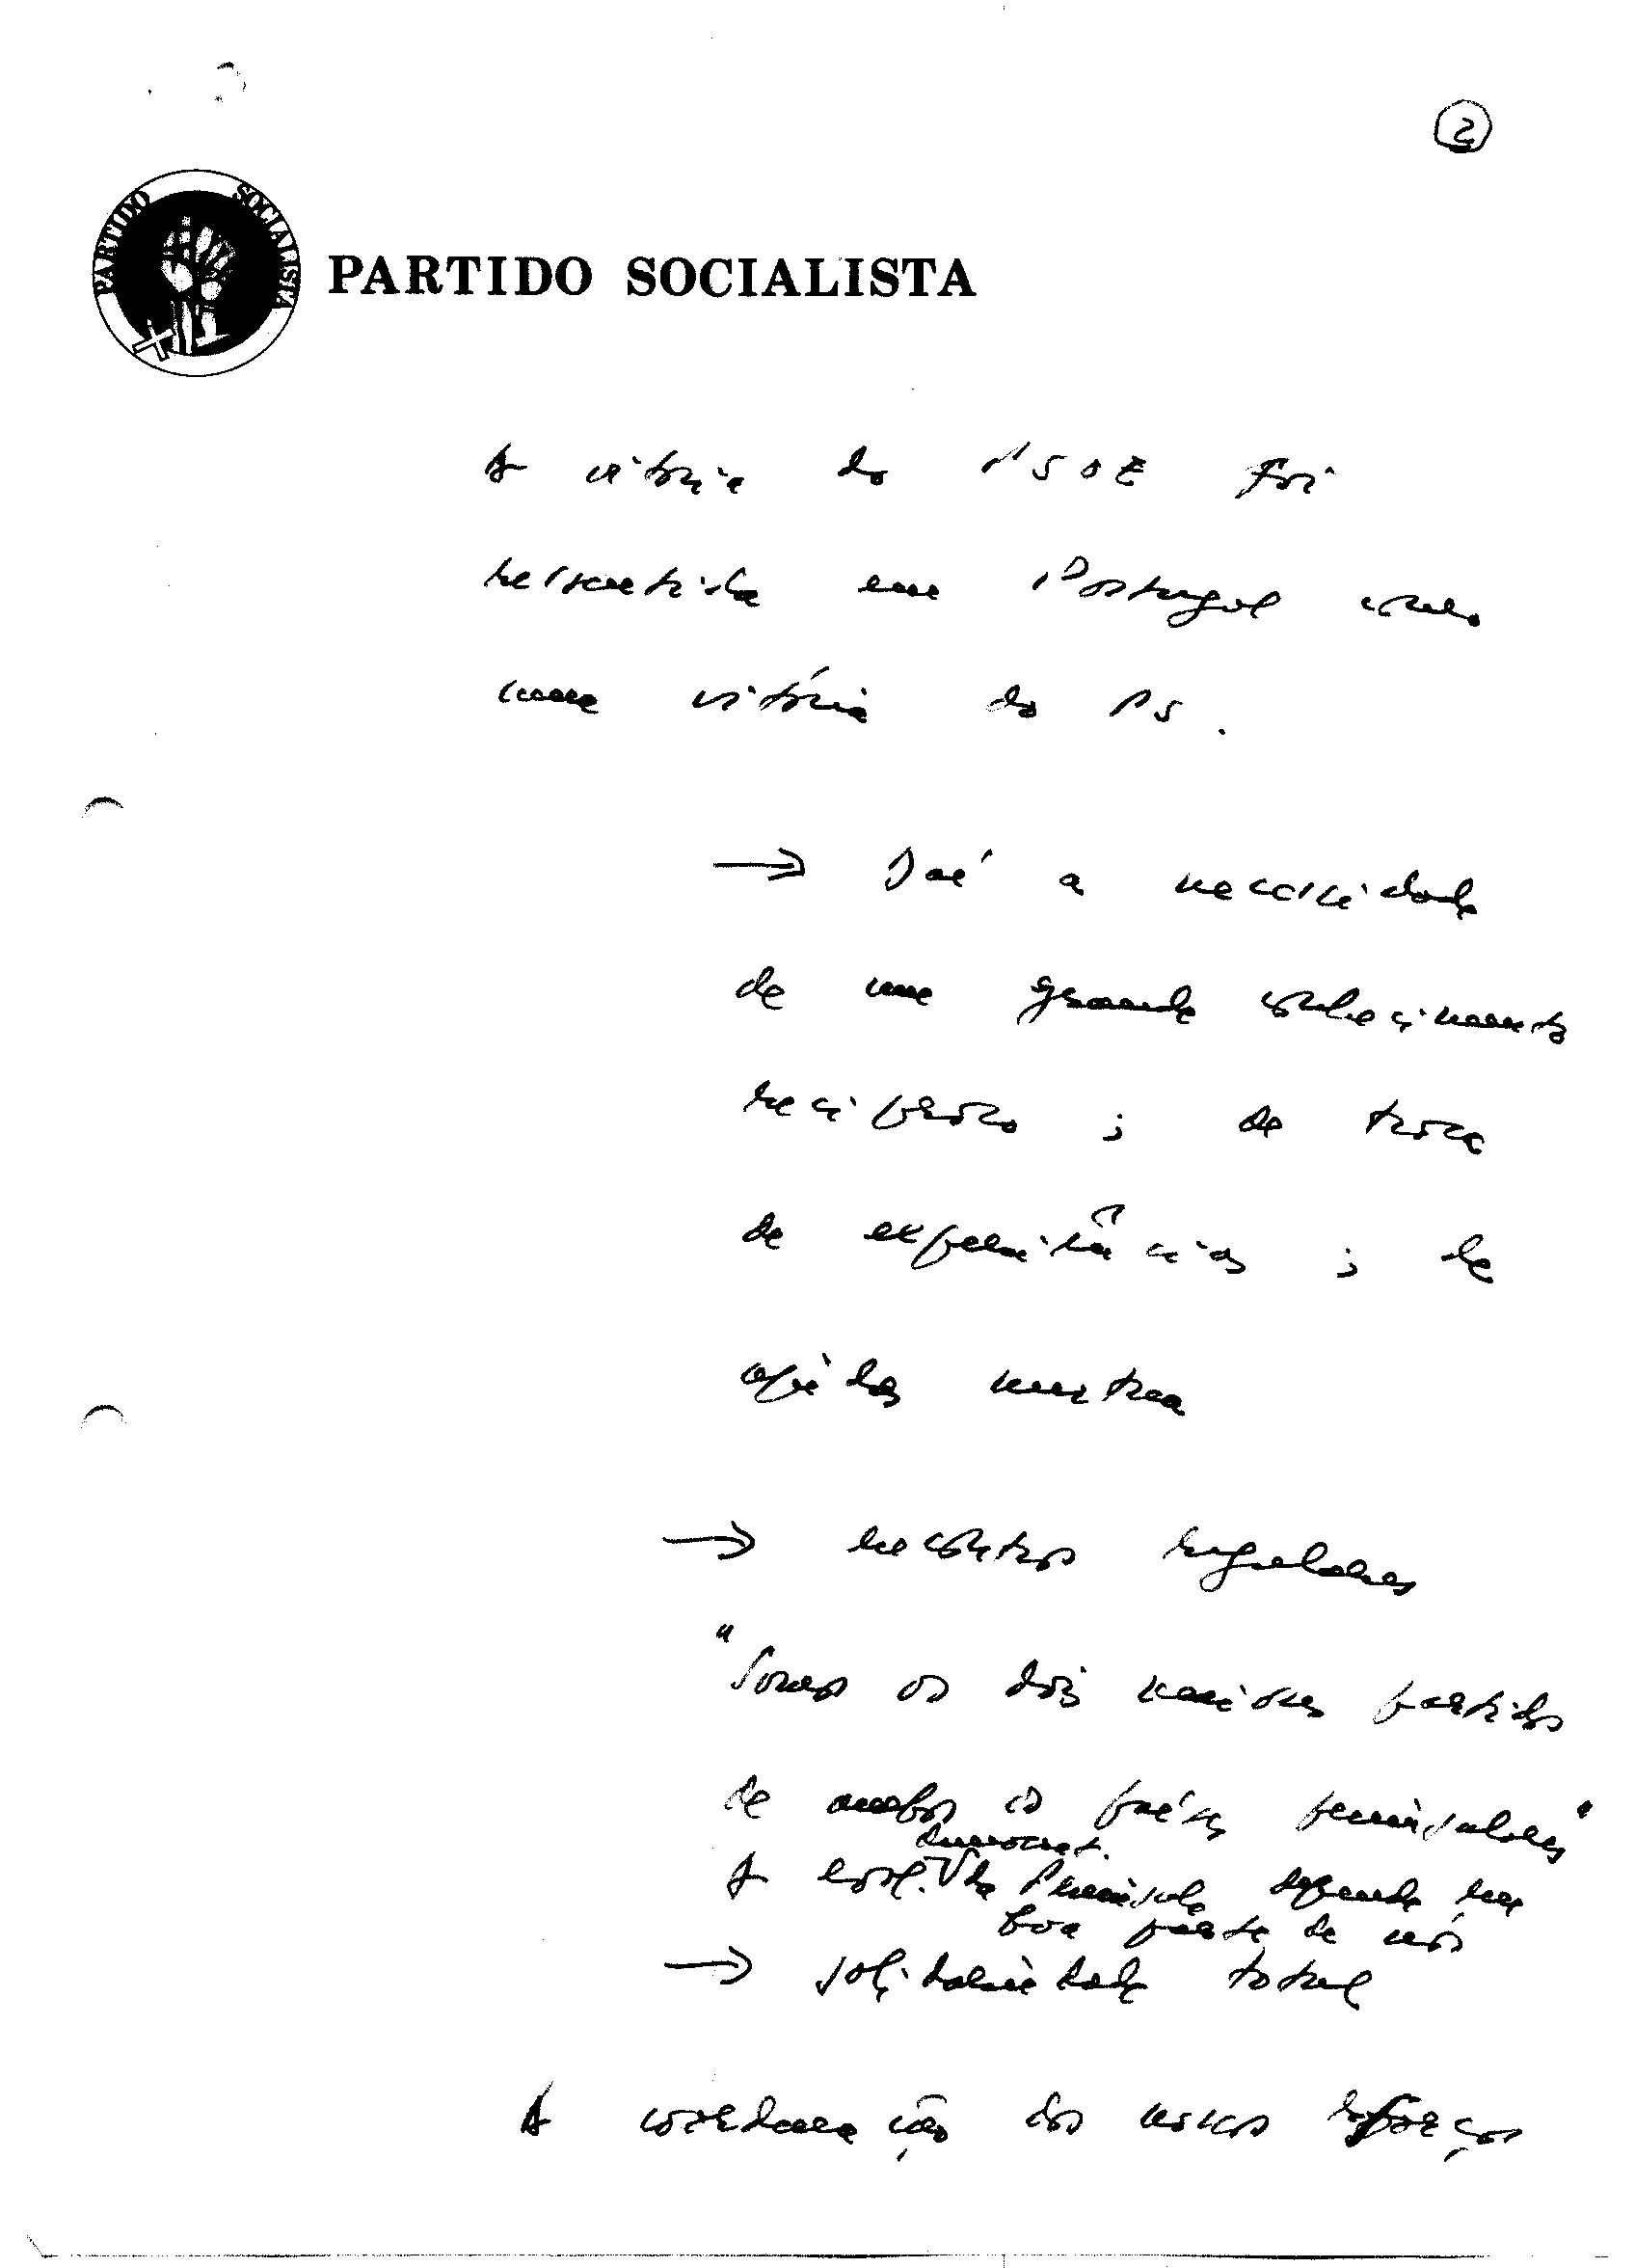 2
PARTIDO SOCIALISTA
PARTIDO SOCIALISTA
A vitória do PSOE foi
ressentida em Portugal como
uma vitória do PS.
→ Daí a necessidade
de um grande conhecimento
recíproco; de troca
de experiências; de
ajuda mútua
→ encontros regulares
"Somos os dois maiores partidos
de ambos os países peninsulares"
democrat.
A evol. da Península depende em
boa parte de nós
→ solidariedade total
A coordenação dos nossos esforços